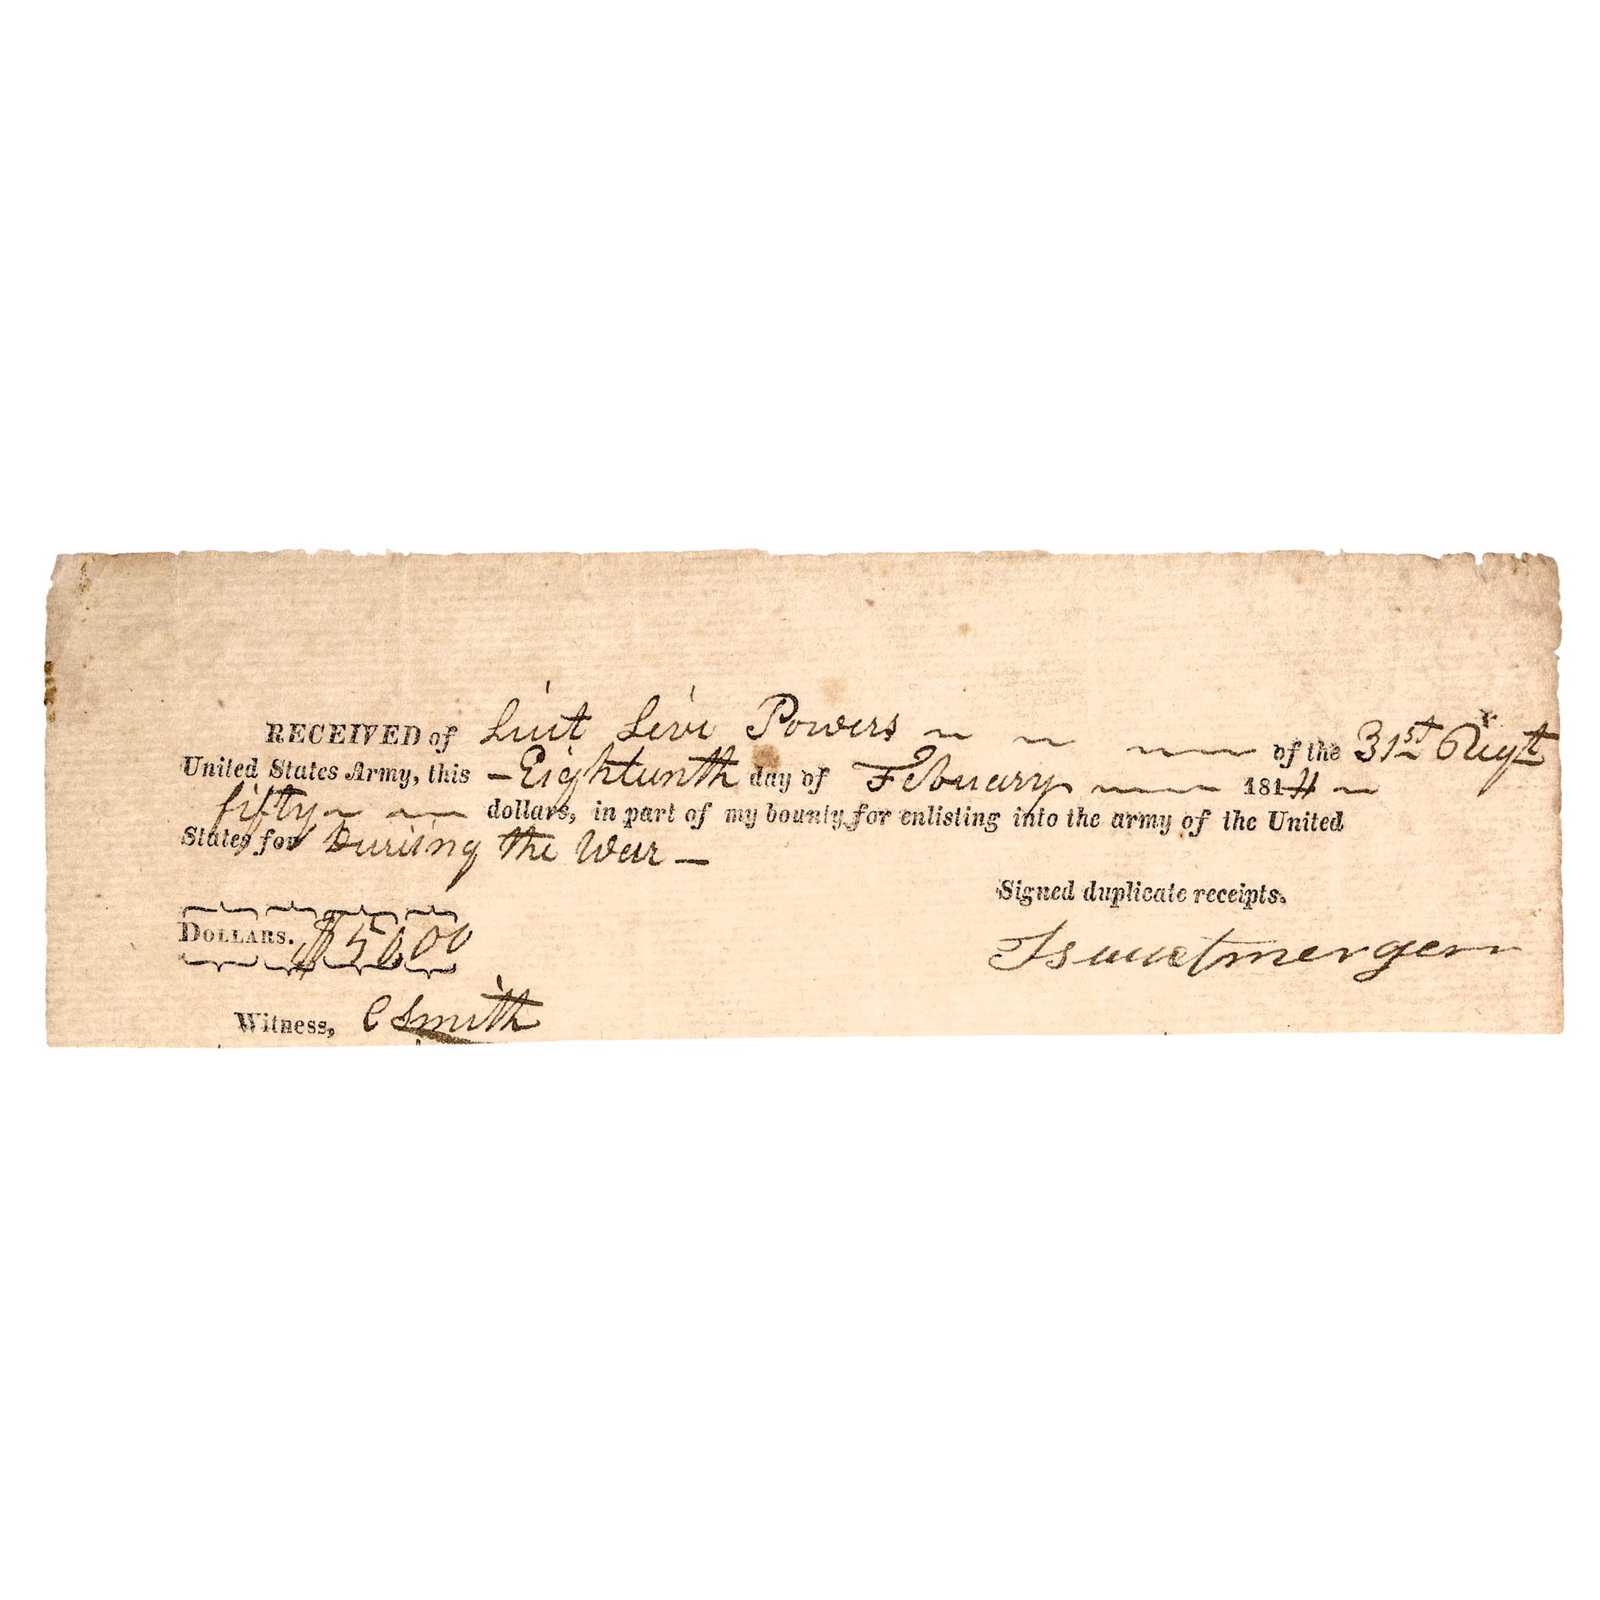 RECEIVED of Liut Levi Powers of the 31st Regt
United States Army, this Eighteenth day of Febuary 1814
fifty dollars, in part of my bounty for enlisting into the army of the United
States forDuriing the War
Signed duplicate receipts.
DOLLARS. $50 00
Witness, C Smith